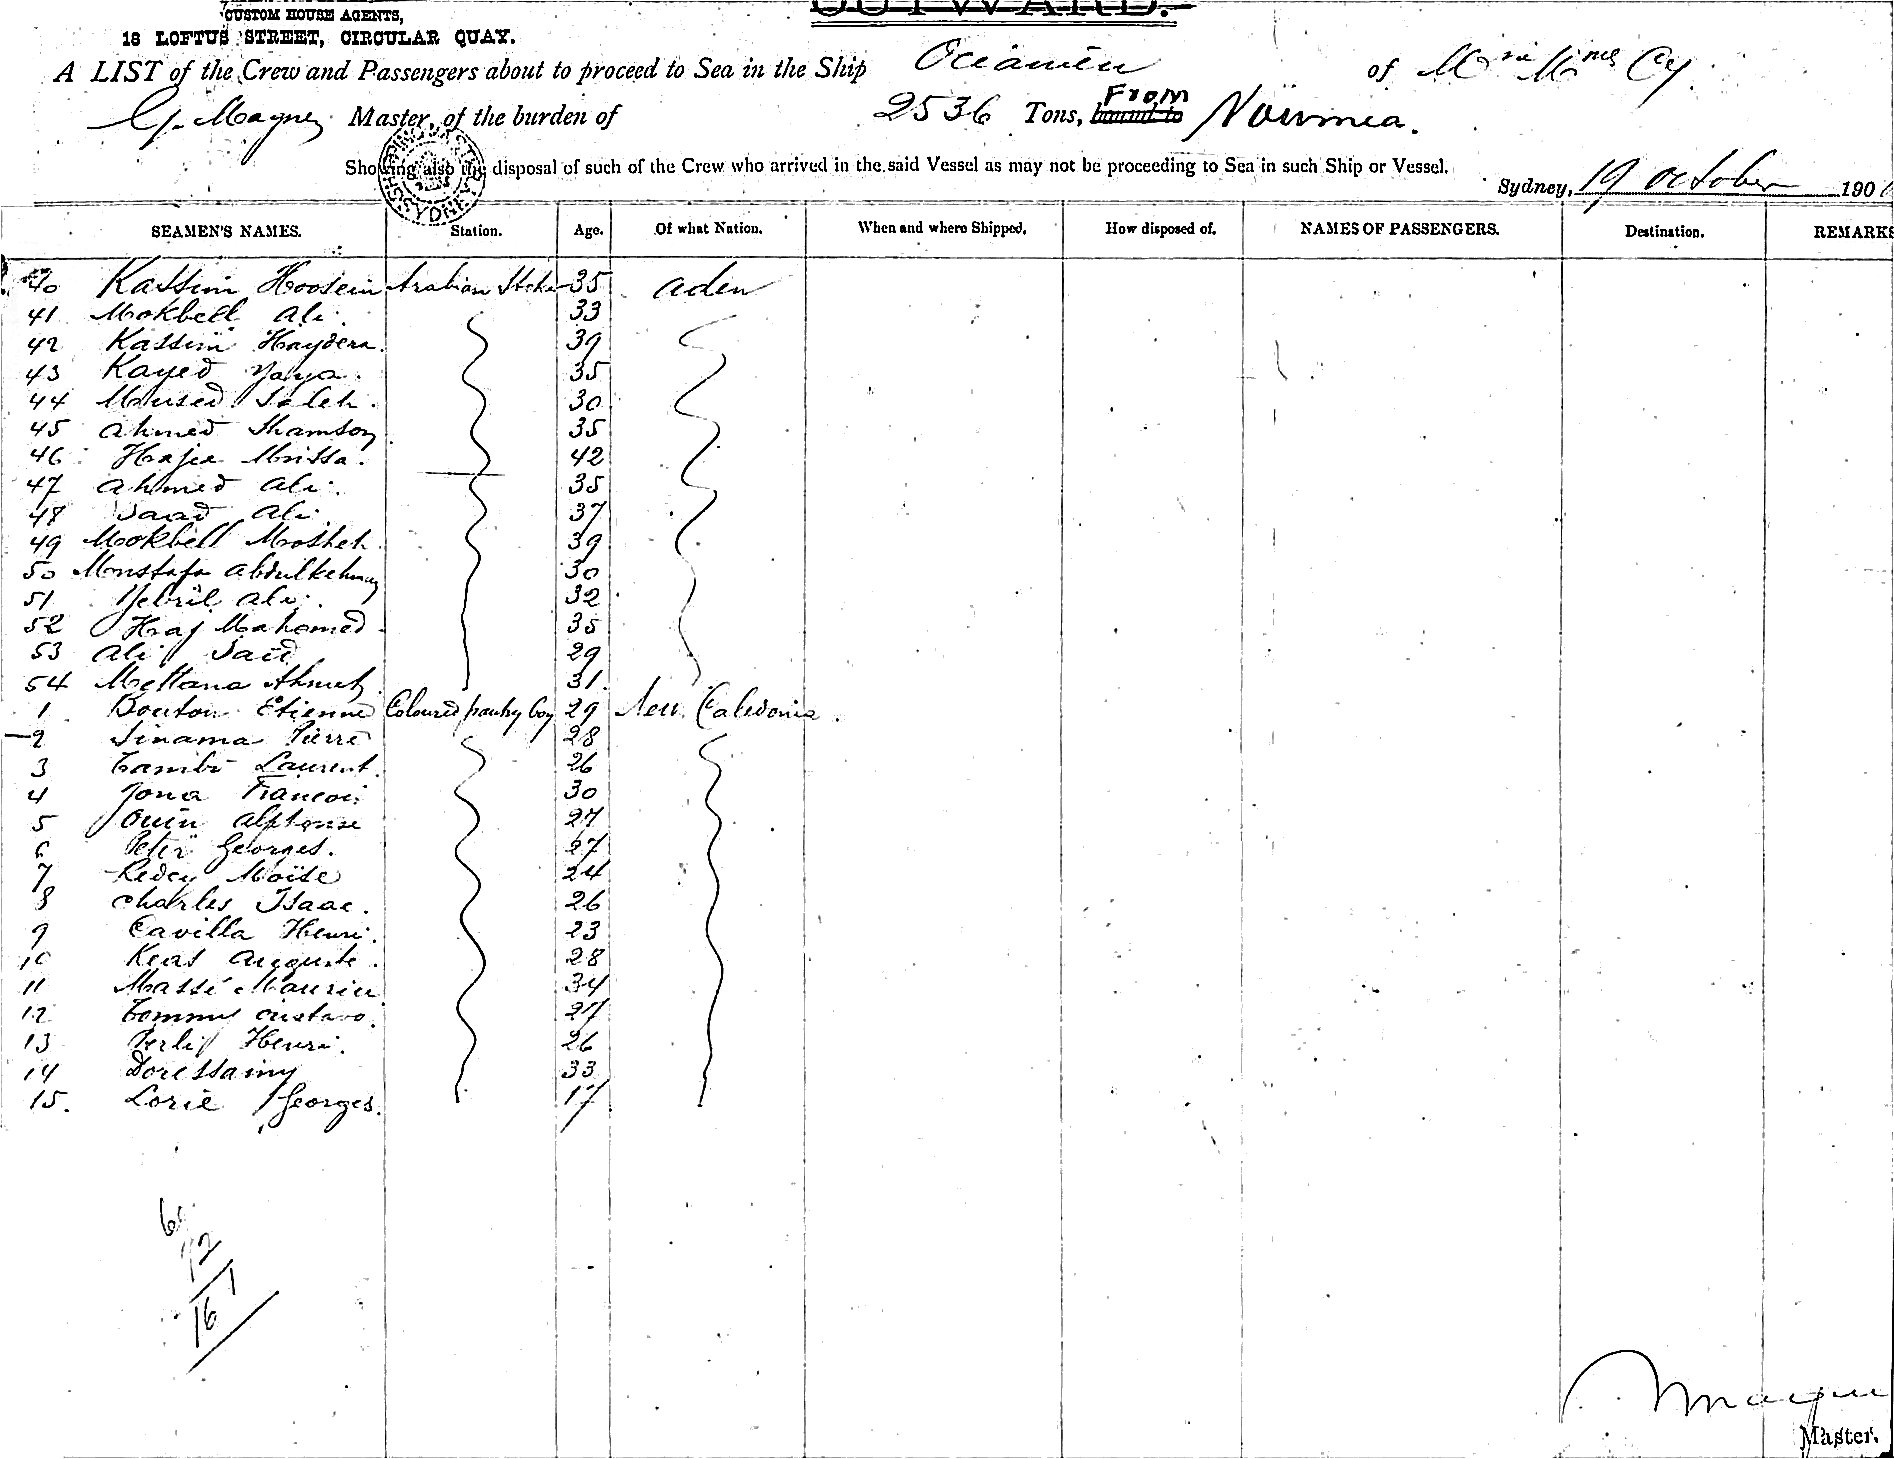 OUTWARD.
CUSTOM HOUSE AGENTS,
18 LOFTUS STREET, CIRCULAR QUAY.
A LIST of the Crew and Passengers about to proceed to Sea in the Ship Océanien of
G. Magnez Master, of the burden of 2536 Tons, bound to From Nouméa.
Showing also the disposal of such of the Crew who arrived in the said Vessel as may not be proceeding to Sea in such Ship or Vessel.
Sydney, 19 October 190
SEAMEN'S NAMES. Station. Age. Of what Nation. When and where Shipped. How disposed of. NAMES OF PASSENGERS. Destination. REMARKS
40 Kassim Hoosein Arabian 35 aden
41 Mokbell ali 33
42 Kassim Haydera 39
43 Kayed Yaya 35
44 Mused Saleh 30
45 ahmed Shamson 35
46 Hajea Mrissa 42
47 ahmed ali 35
48 Saad ali 37
49 Mokbell Mosheh 39
50 Monstafa 30
51 Yebril ali 32
52 Haj Mahomed 35
53 ali Said 29
54 Ahmed 31
1 Bouton Etienne Coloured pantry boy 29 New Caledonia.
2 Sinama Pierre 28
3 Laurent. 26
4 Jona Francois 30
5 Ouin alphonse 27
6 Georges. 27
7 Moïse 24
8 Charles Isaac. 26
9 Cavilla Henri. 23
10 Keas auguste. 28
11 Massé 34
12 Tommy Gustavo. 27
13 Perlif Henri. 26
14 Doressamy 33
15. Lorie Georges. 17
12
161
Master.